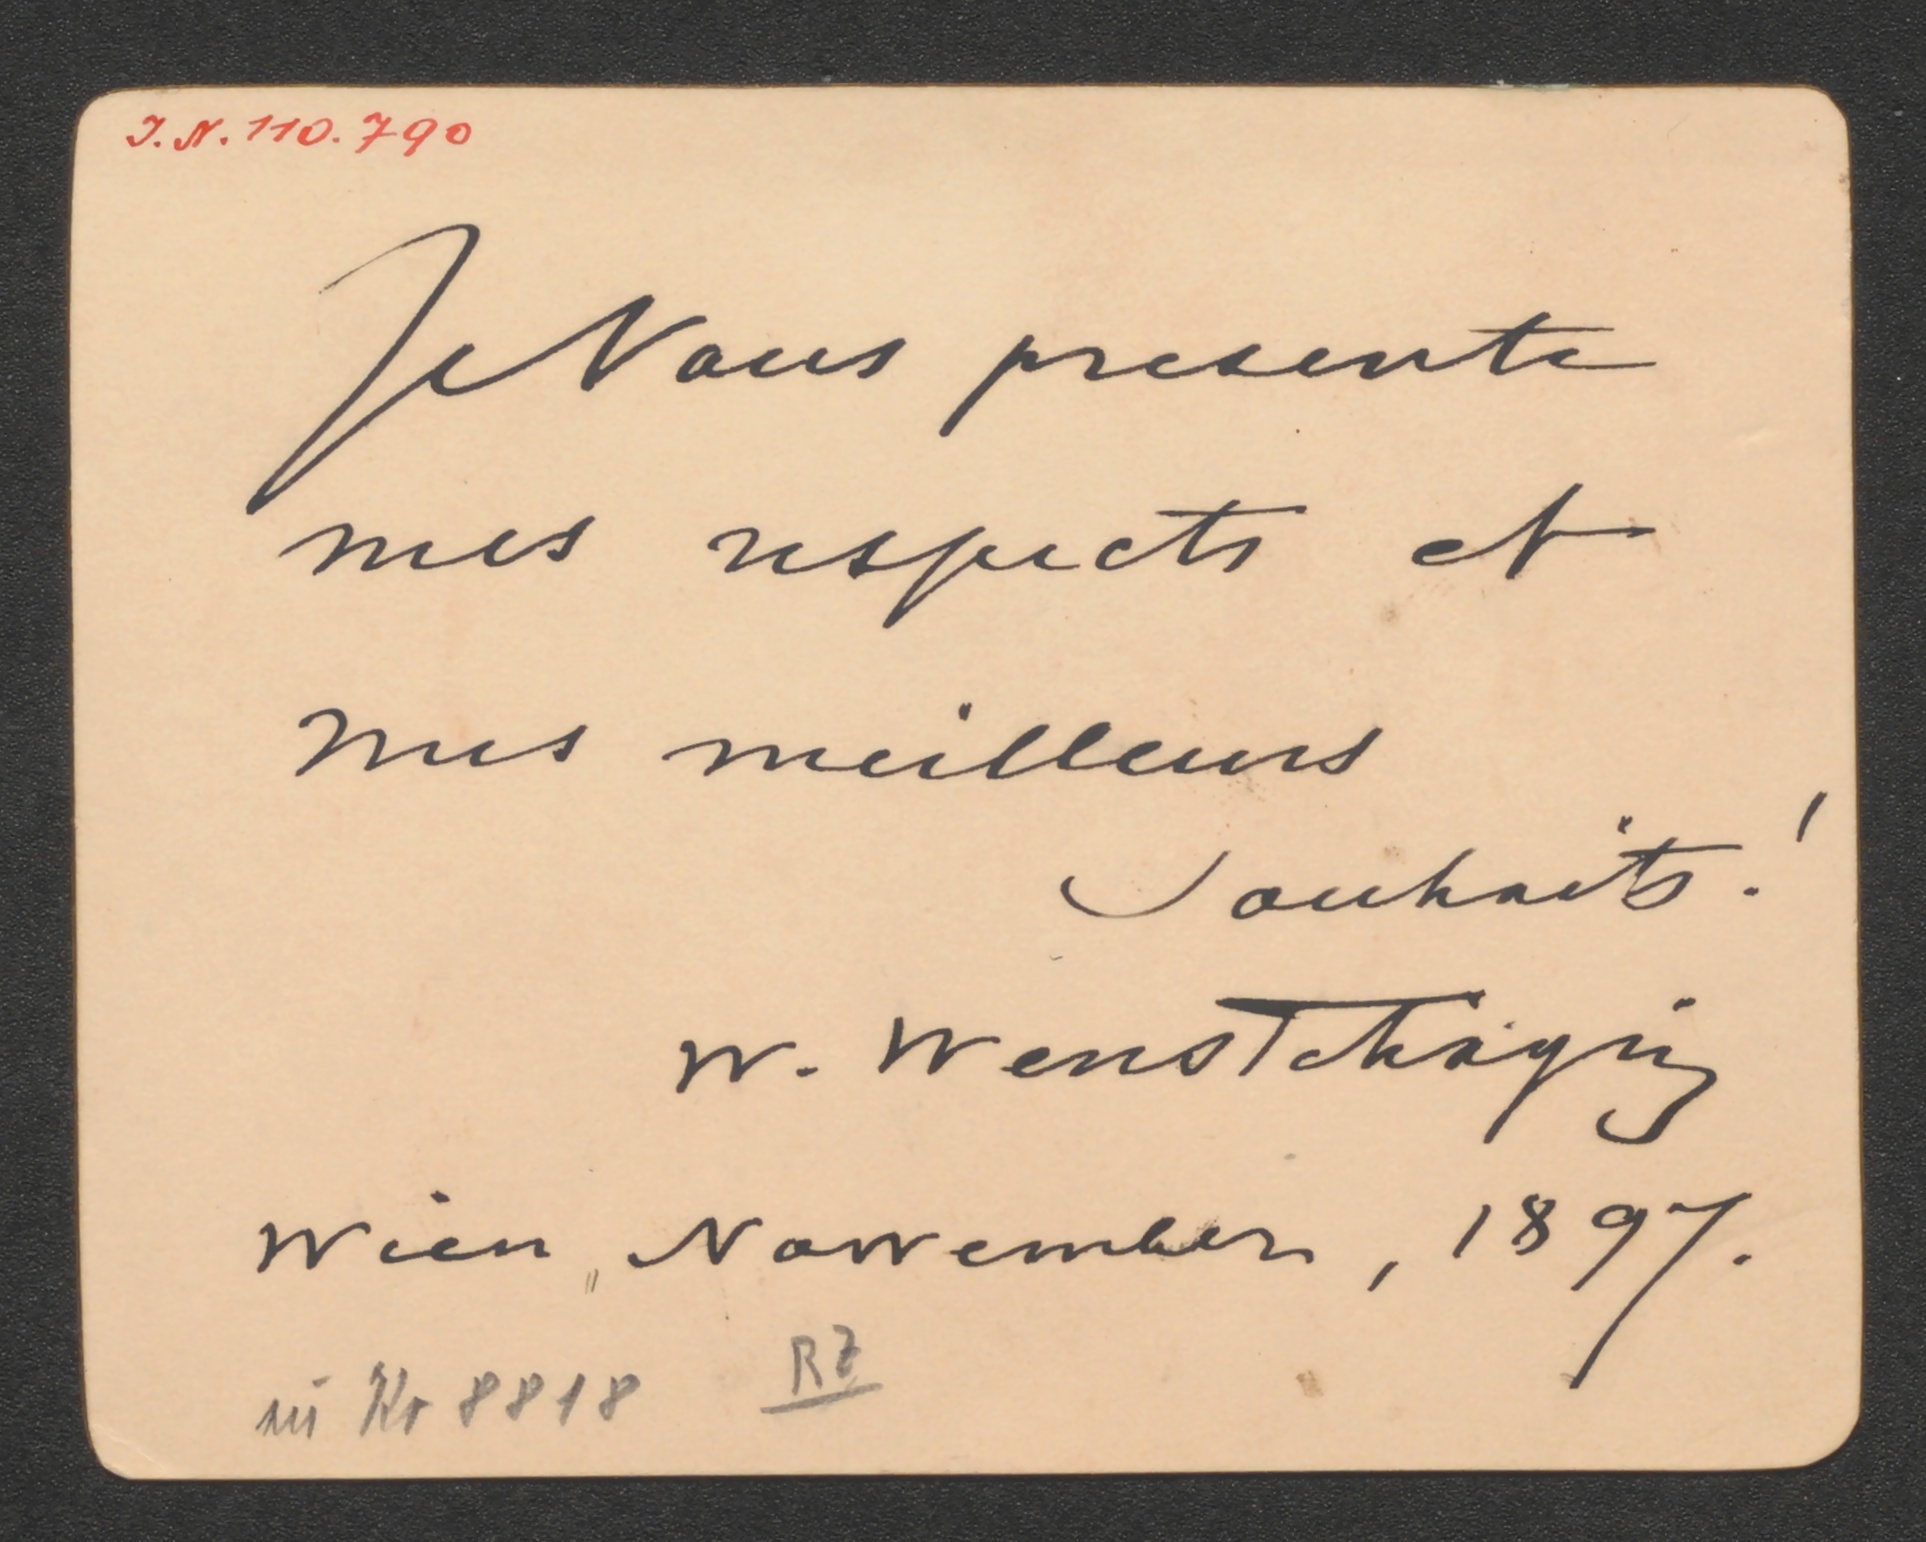 I.N. 110.790
Je Vous presente
mes respects et
mes meilleurs
Souhaits!
W. Werestchagin
Wien, November, 1897.
zu Kr 8818 RZ